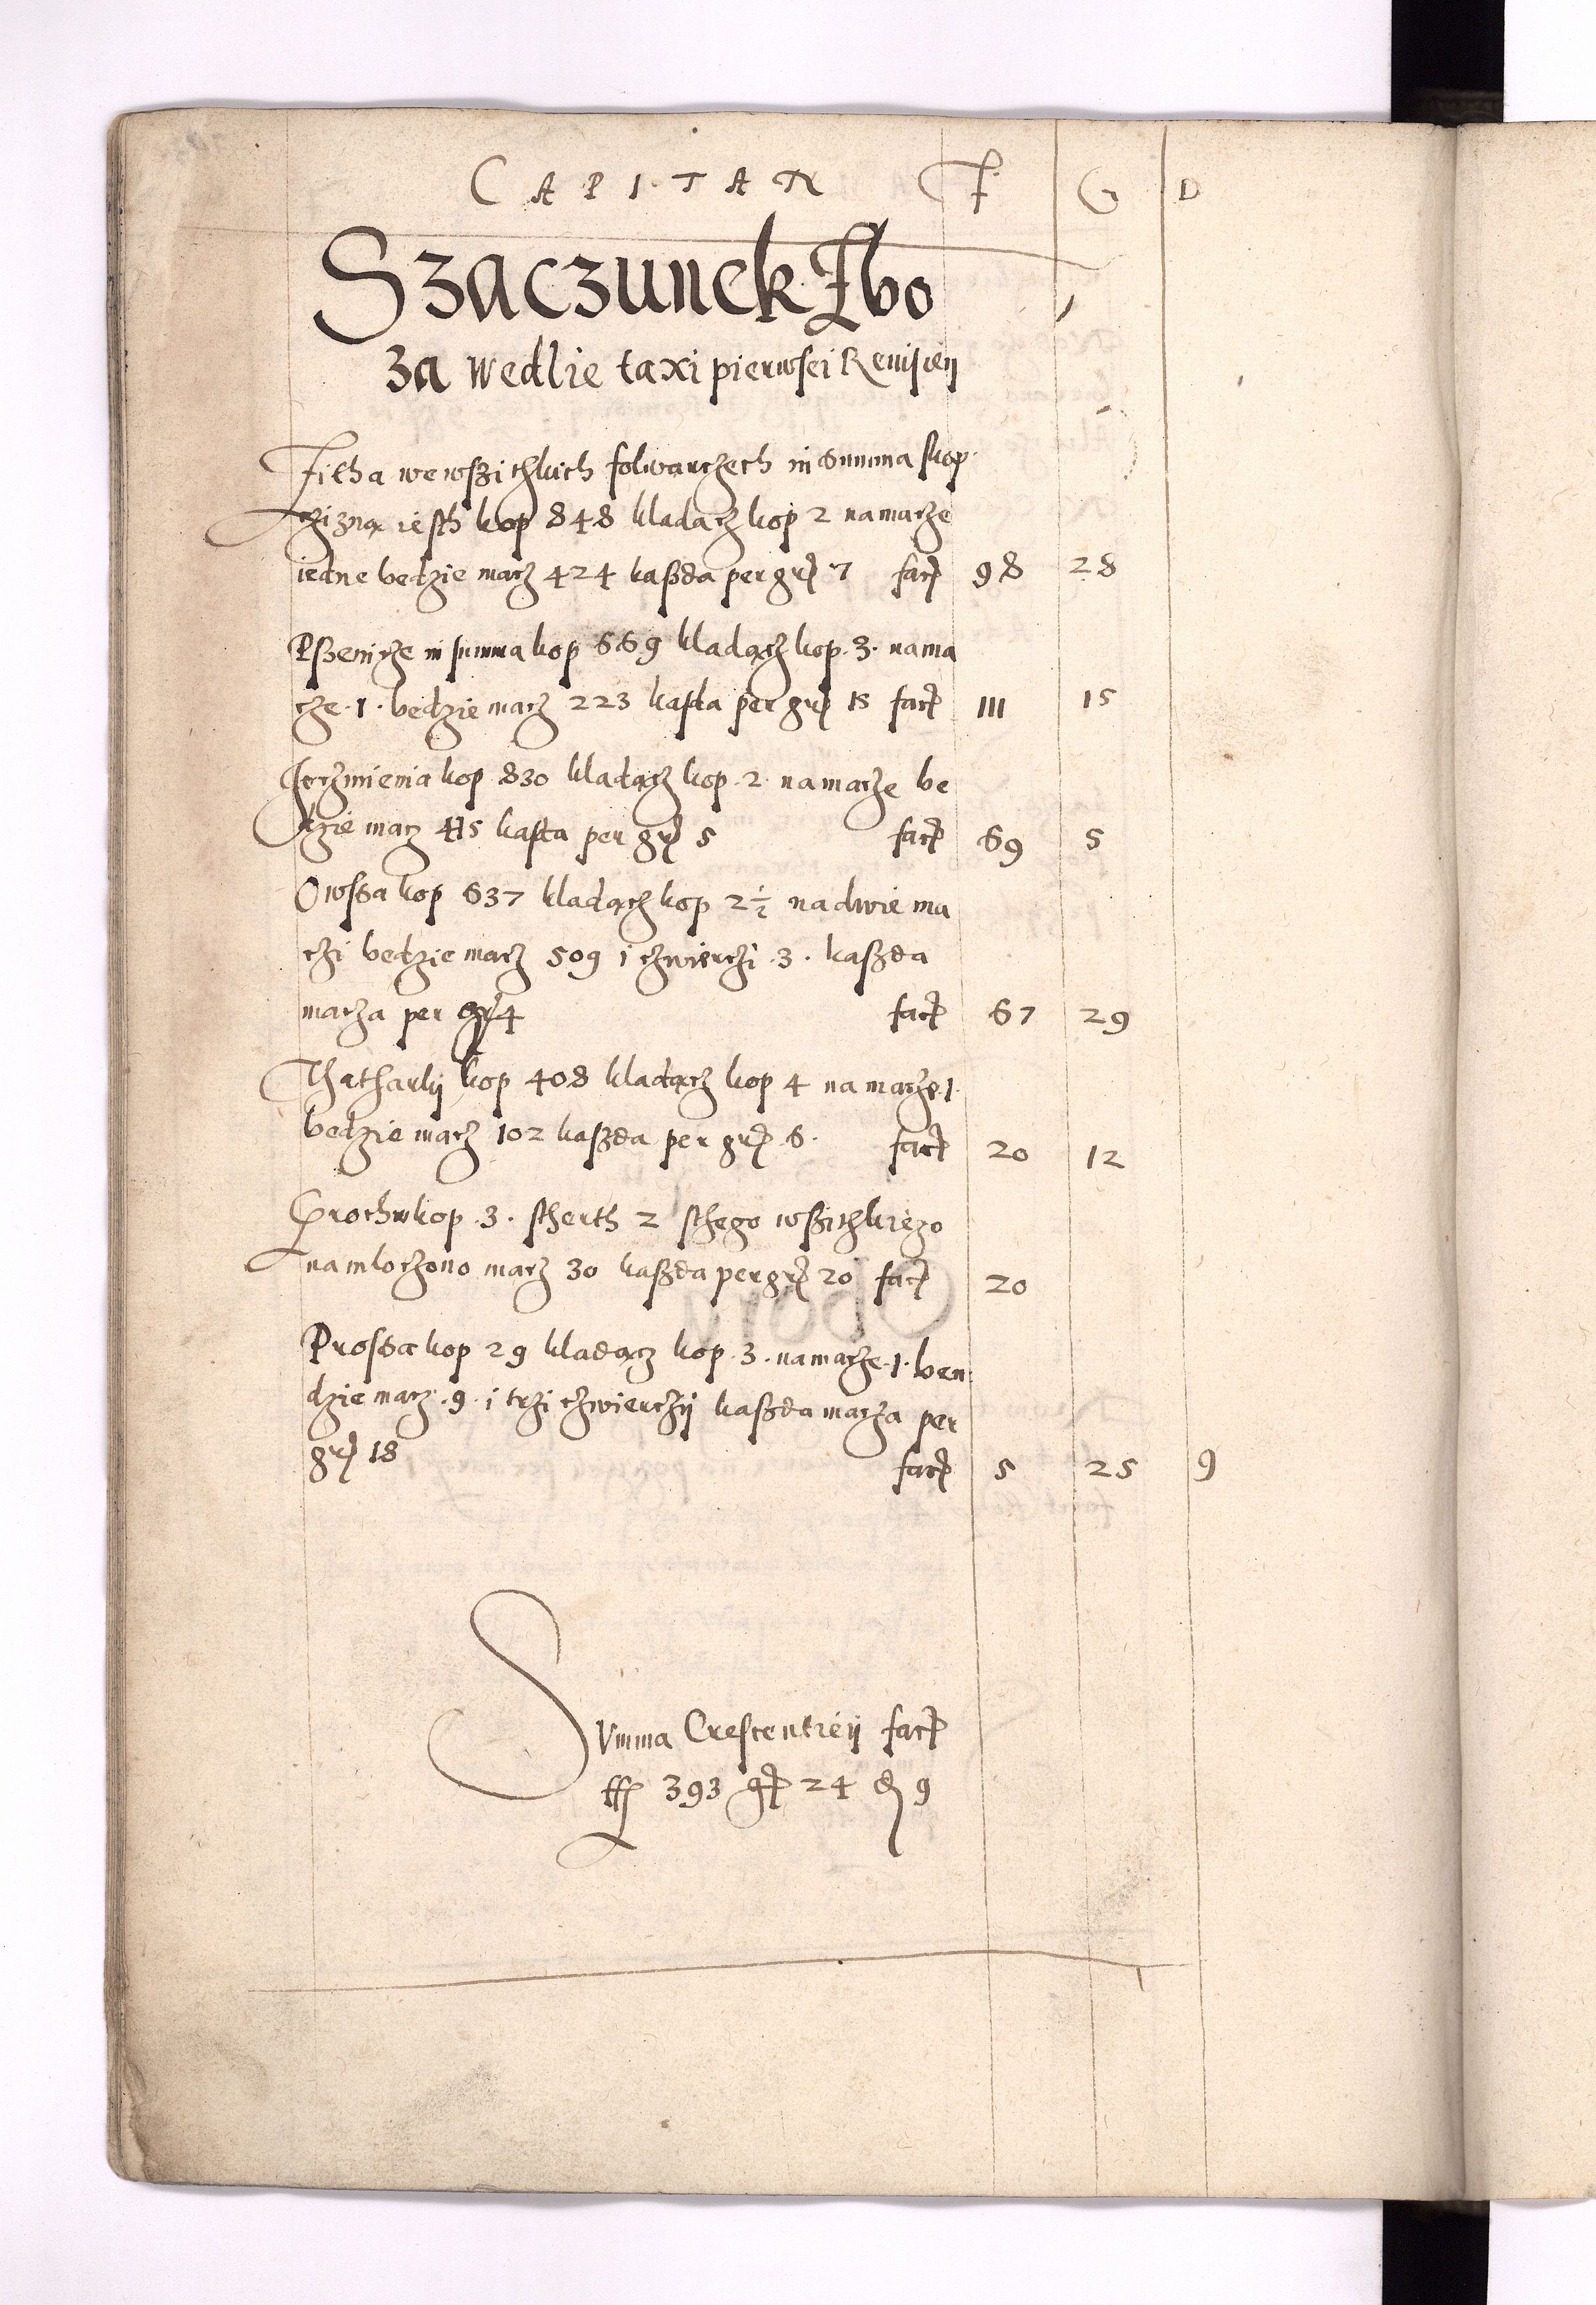 CAPITAN F G D
Szaczunek Zbo
za wedlie taxi pierwsei Revisiey
Zitha we wßitzkich folwarczech in Summa skop
czizną iesth kop 848 kladącz kop 2 na macze
iedne bedzie macz 424 kaßda per grs 7 facit 98 28
Pßenicze in summa kop 669 kladącz kop .3. na ma
cze .1. bedzie macz 223 kaßda per grs 15 facit 111 15
Jęczmienia kop 830 kladącz kop .2. na macze be
dzie macz 415 kaßda per grs 5 facit 69 5
Owßa kop 637 kladącz kop 2 1/2 na dwie ma
czi bedzie macz 509 i czwierczi .3. kaßda
macza per grs 4 facit 67 29
Thatharky kop 408 kladącz kop 4 na macze .1.
bedzie macz 102 kaßda per grs .6. facit 20 12
Grochu kop .3. stherth 2 sthego wßitzkiego
namloczono macz 30 kaßda per grs 20 facit 20
Prossa kop 29 kladącz kop .3. na macze .1. ben
dzie macz .9. i trzi czwierczy kaßda macza per
grs 18 facit 5 25 9
Summa Crescentiey facit
fl 393 gr 24 d 9